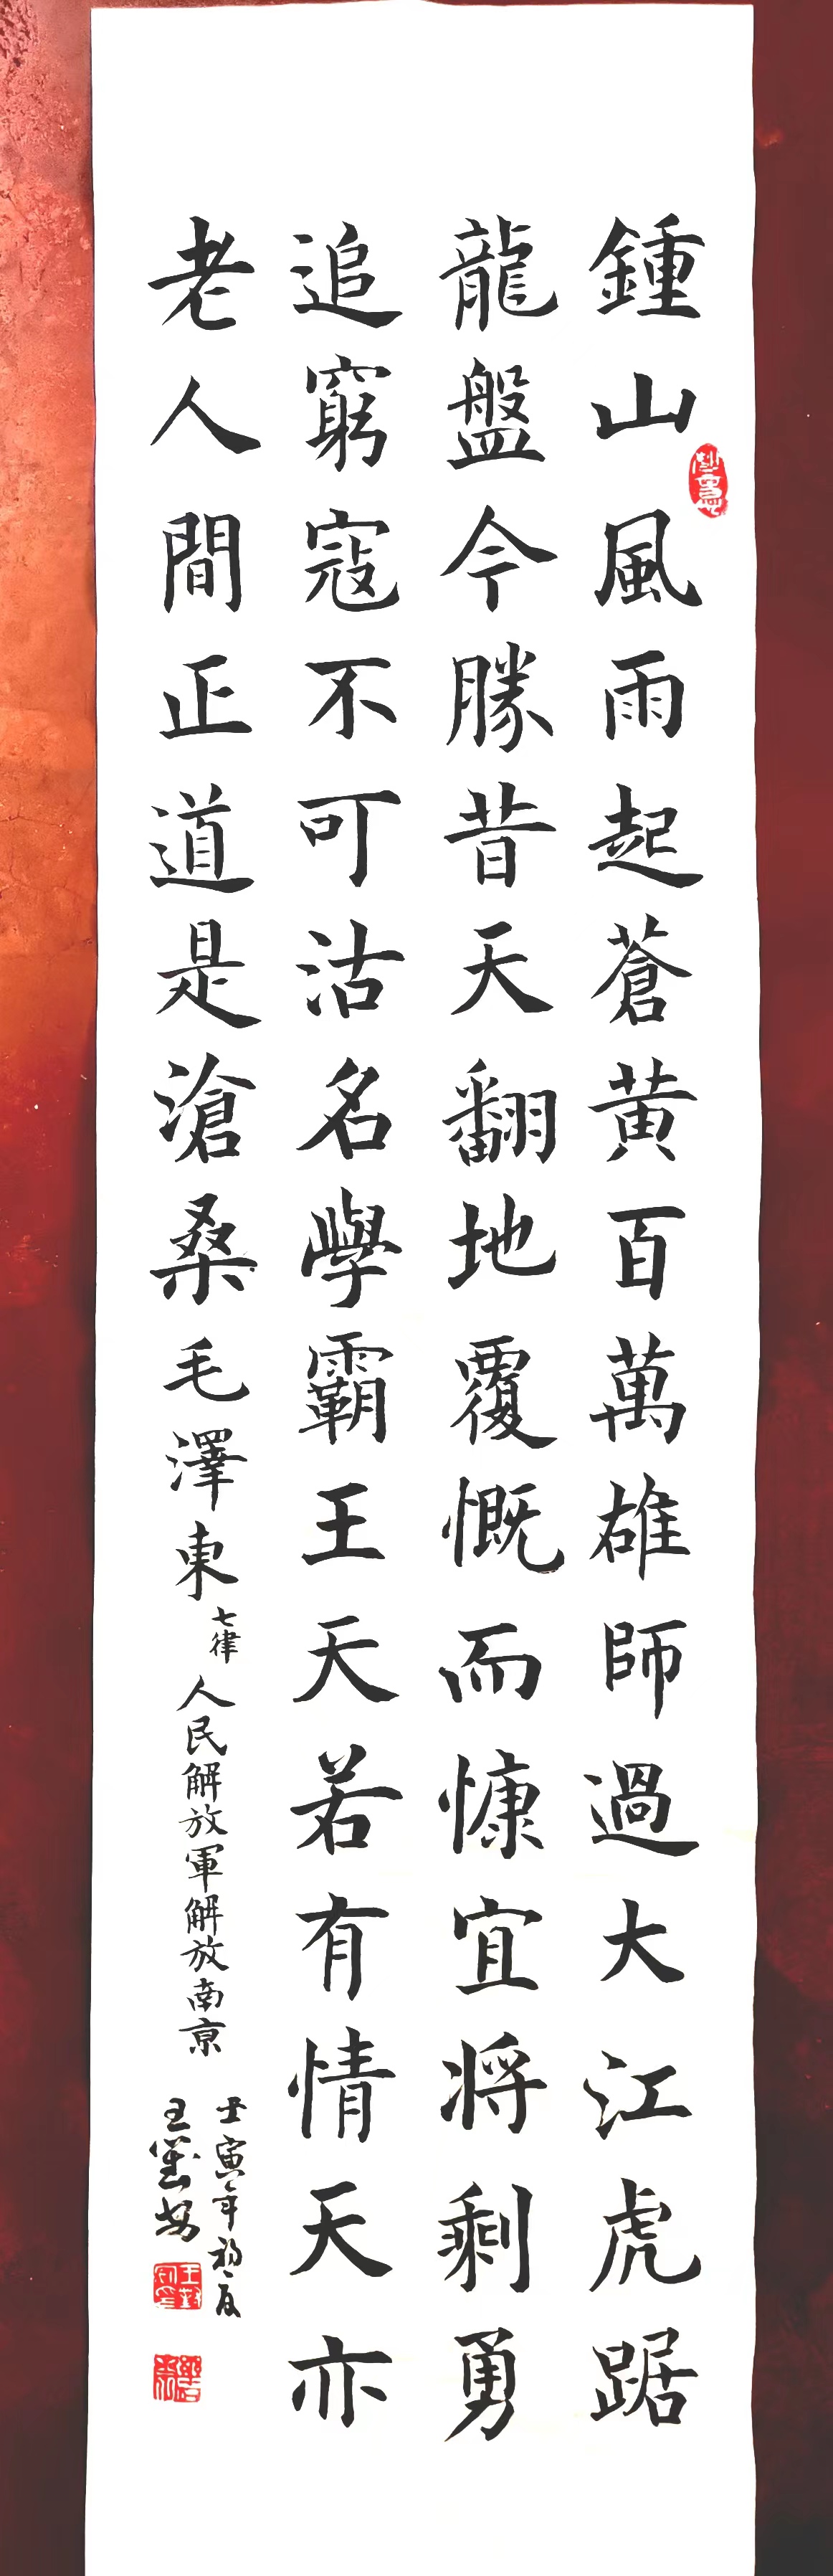 鍾山風雨起蒼黄百萬雄師過大江虎踞
龍盤今勝昔天翻地覆慨而慷宜将剩勇
追窮寇不可沽名學霸王天若有情天亦
老人間正道是滄桑毛澤東七律人民解放軍解放南京
壬寅年初夏